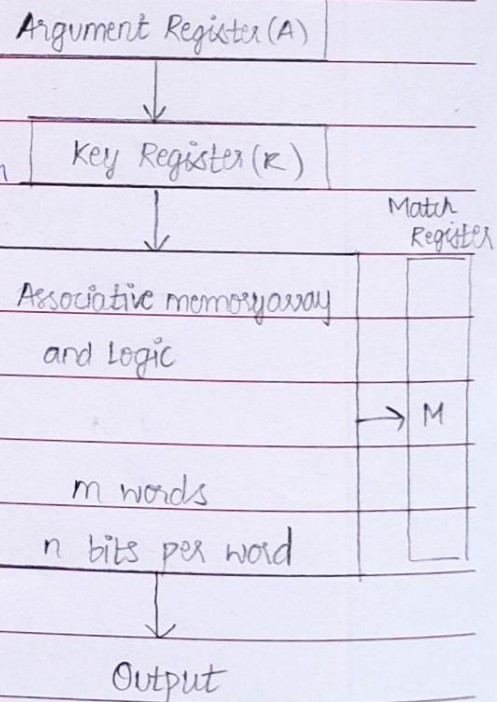 Argument Register (A)
Key Register (K)
Match
Register
Associative memory array
and Logic
M
m words
n bits per word
Output